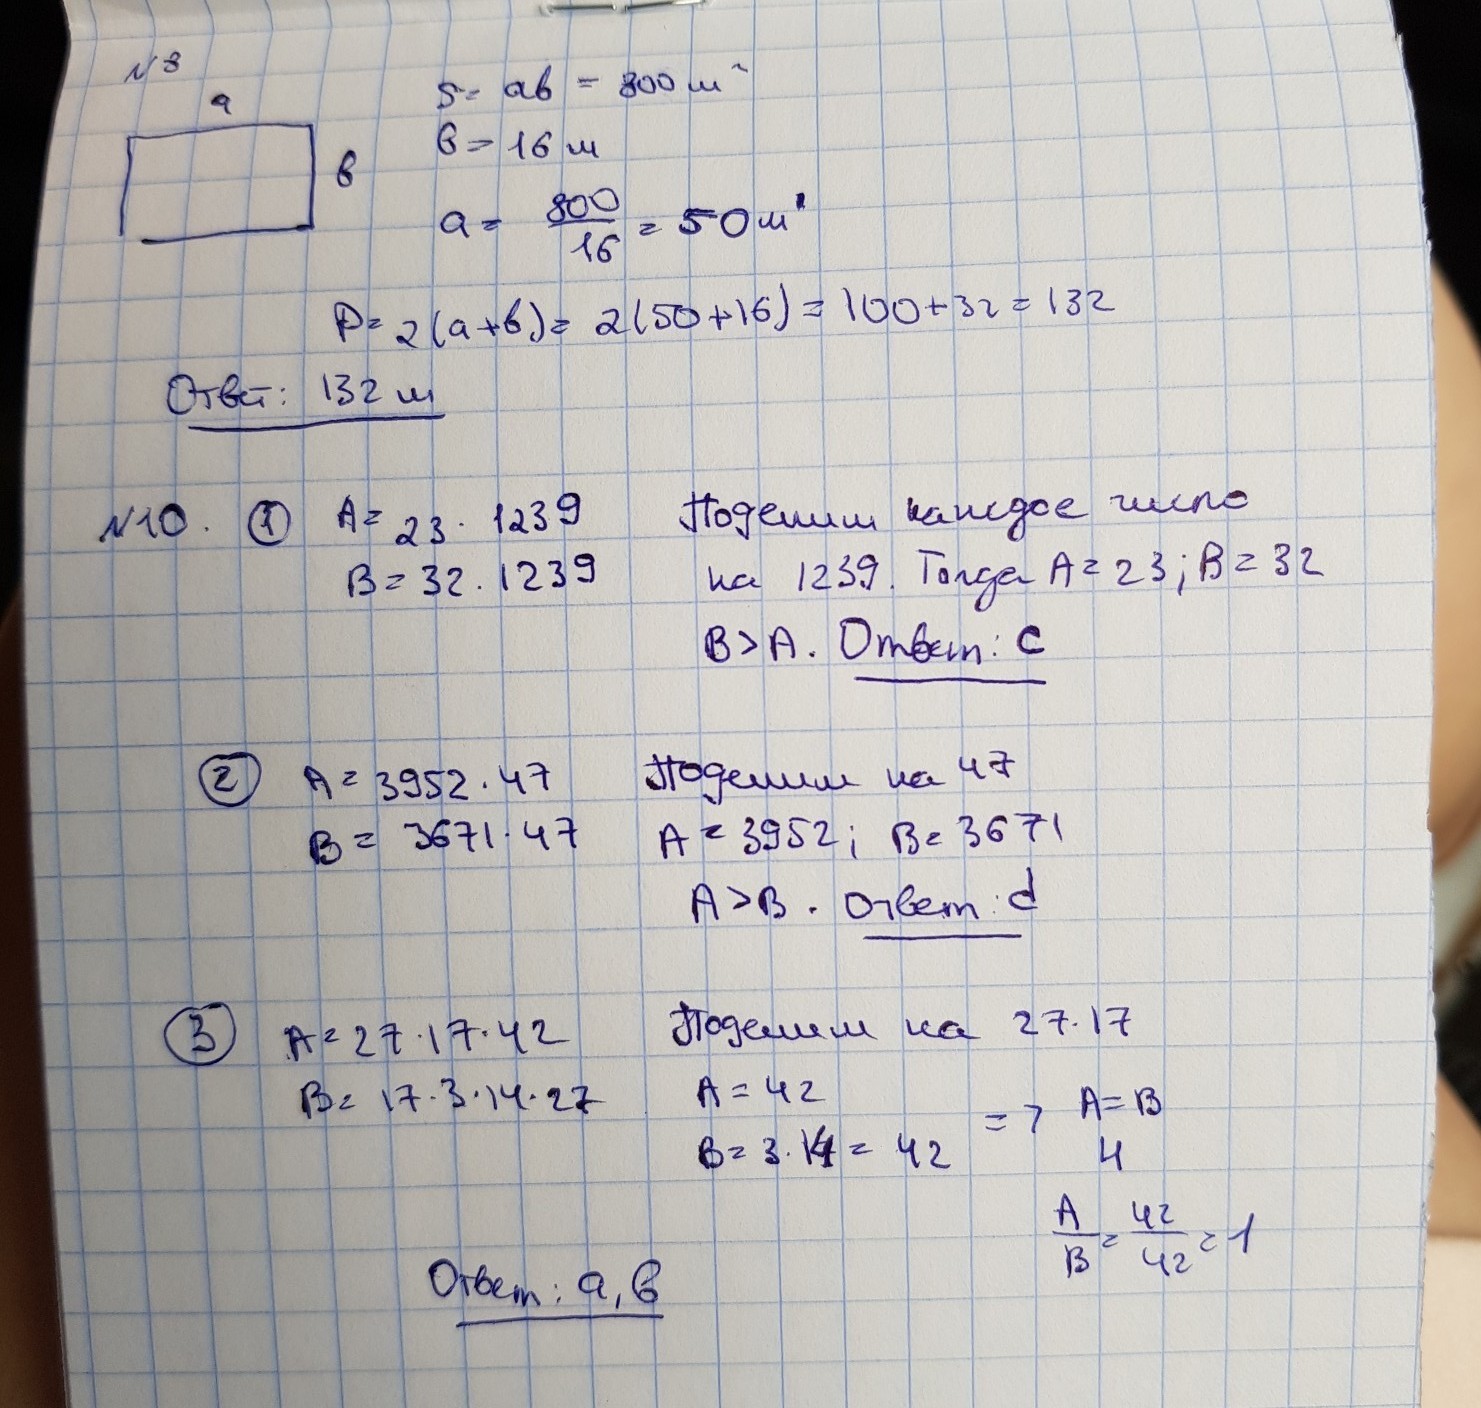 №8
a
b
S = ab = 800 м²
b = 16 м
a = 800/16 = 50 м
P = 2(a+b) = 2(50+16) = 100+32 = 132
Ответ: 132 м
№10. ① A = 23 · 1239
B = 32 · 1239
Поделим каждое число
на 1239. Тогда A = 23; B = 32
B > A. Ответ: c
② A = 3952 · 47
B = 3671 · 47
Поделим на 47
A = 3952; B = 3671
A > B. Ответ: d
③ A = 27 · 17 · 42
B = 17 · 3 · 14 · 27
Поделим на 27 · 17
A = 42
B = 3 · 14 = 42
=> A = B
и
A/B = 42/42 = 1
Ответ: a, b